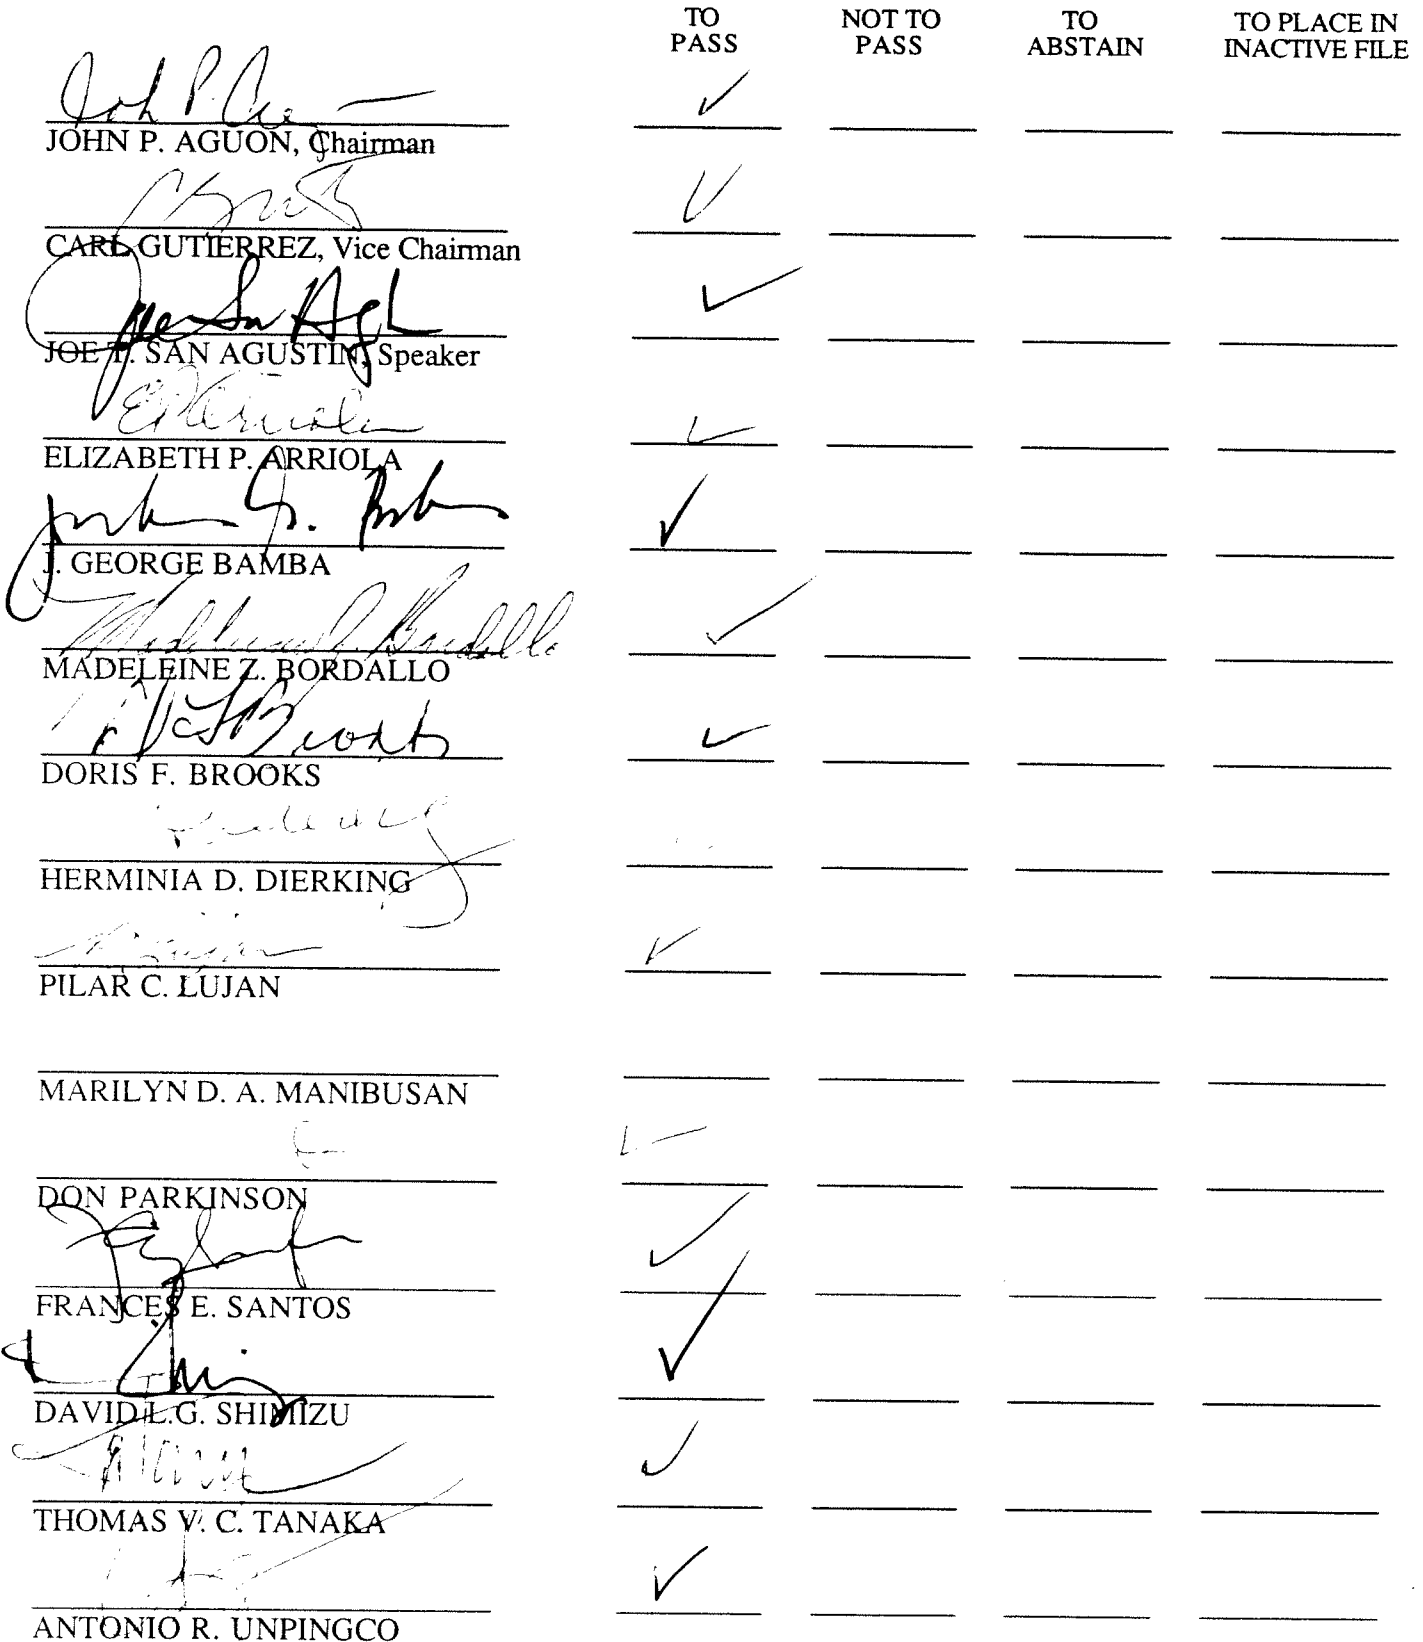 TO PASS NOT TO PASS TO ABSTAIN TO PLACE IN INACTIVE FILE
John P. ✓
JOHN P. AGUON, Chairman
✓
CARL GUTIERREZ, Vice Chairman
✓
JOE T. SAN AGUSTIN, Speaker
EPArriola ✓
ELIZABETH P. ARRIOLA
✓
J. GEORGE BAMBA
Madeleine Z. Bordallo ✓
MADELEINE Z. BORDALLO
Brooks ✓
DORIS F. BROOKS
HERMINIA D. DIERKING
✓
PILAR C. LUJAN
MARILYN D. A. MANIBUSAN
✓
DON PARKINSON
✓
FRANCES E. SANTOS
✓
DAVID L.G. SHIMIZU
✓
THOMAS V. C. TANAKA
✓
ANTONIO R. UNPINGCO